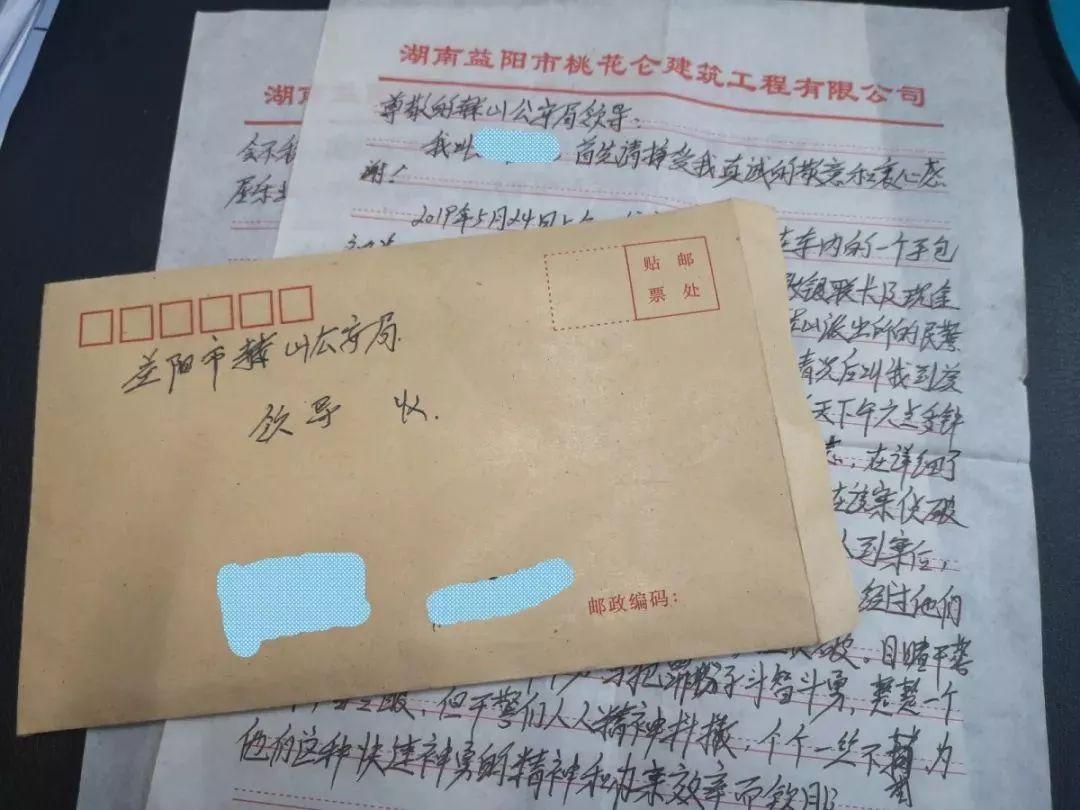 湖南益阳市桃花仑建筑工程有限公司
尊敬的赫山公安局领导:
我叫 ,首先请接受我真诚的敬意和衷心感
谢!
2019年5月24日上午
在车内的一个手包
银联卡及现金
山派出所的民警
情况后叫我到
天下午六点多钟
在详细了
在该案侦破
人到案后,
经过他们
破。目睹干警
与犯罪份子斗智斗勇,整整一个
但干警们人人精神抖擞,个个一丝不苟 为
他们这种快速神勇的精神和办案效率而钦佩
湖南益
会不
居乐
贴 邮
票 处
益阳市赫山公安局
领导 收.
邮政编码: